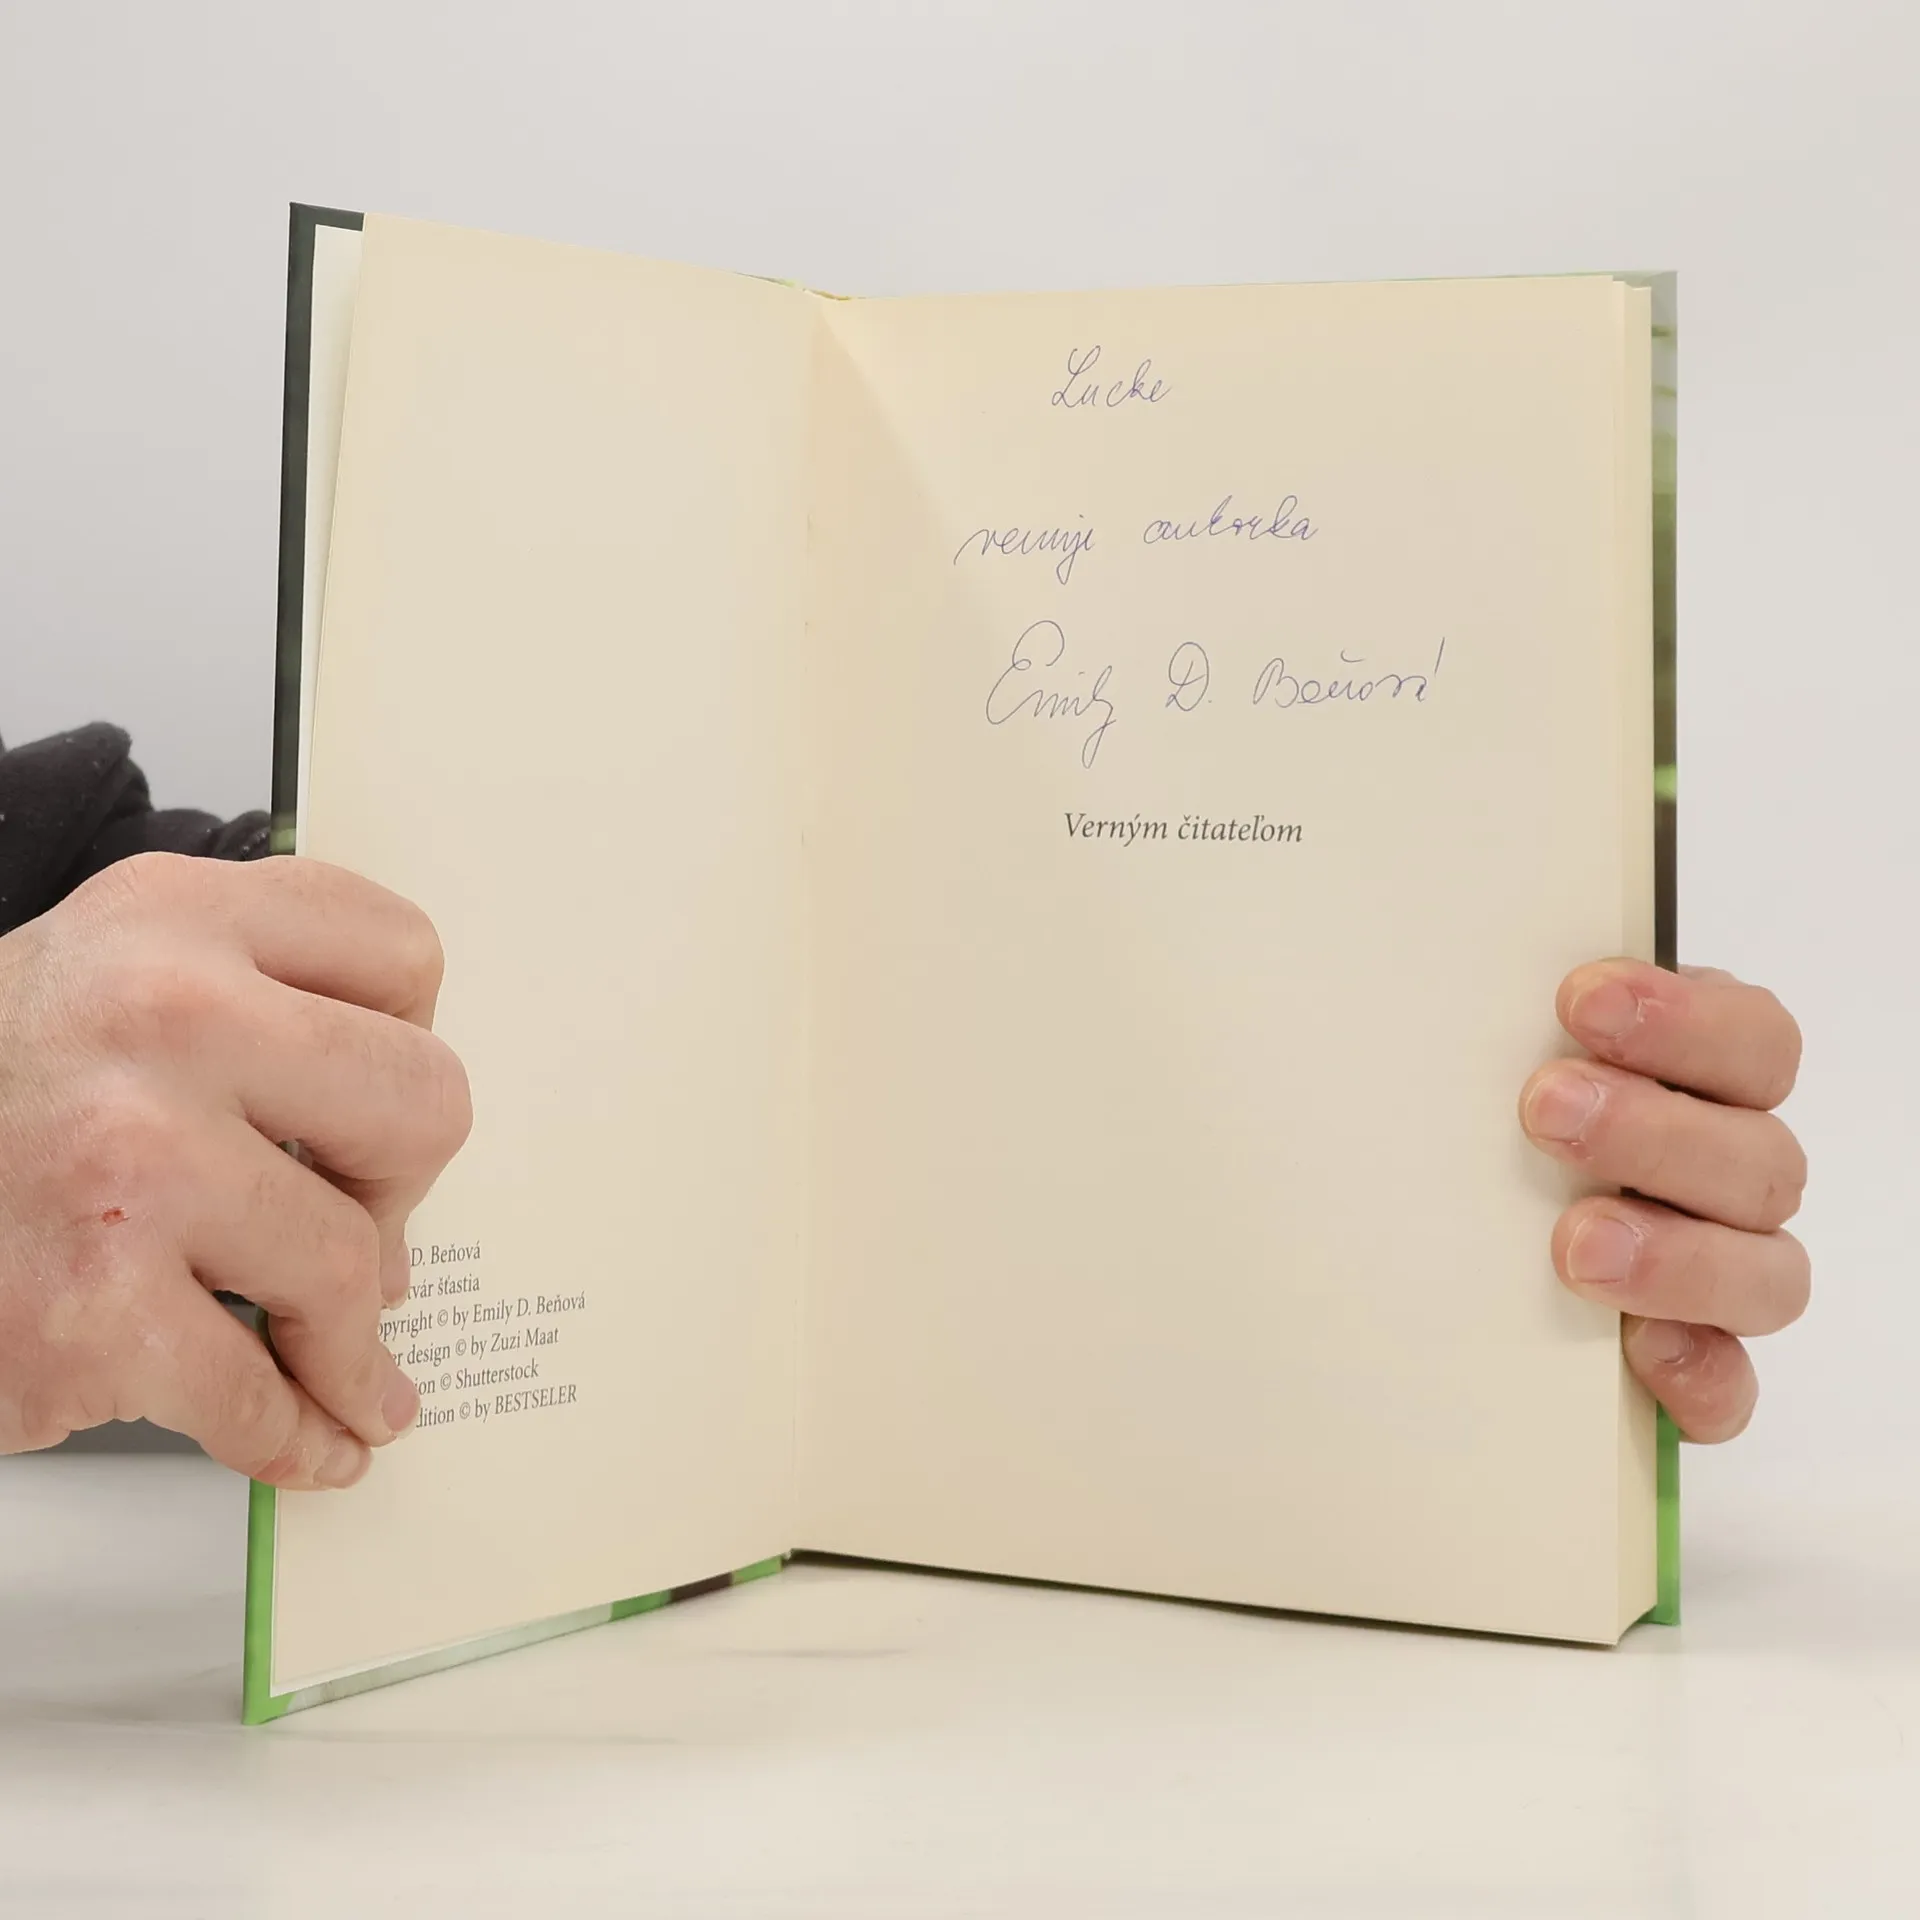 D. Beňová
tvár šťastia
opyright © by Emily D. Beňová
er design © by Zuzi Maat
ion © Shutterstock
dition © by BESTSELER
Lucke
venuje autorka
Emily D. Beňová
Verným čitateľom